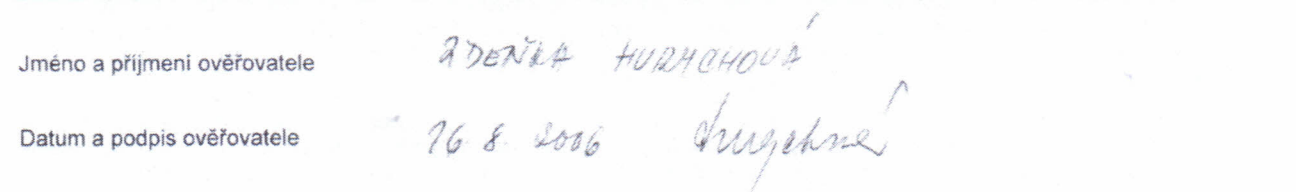 Jméno a příjmení ověřovatele ZDEŇKA HURYCHOVÁ
Datum a podpis ověřovatele 16. 8. 2006 Hurychová